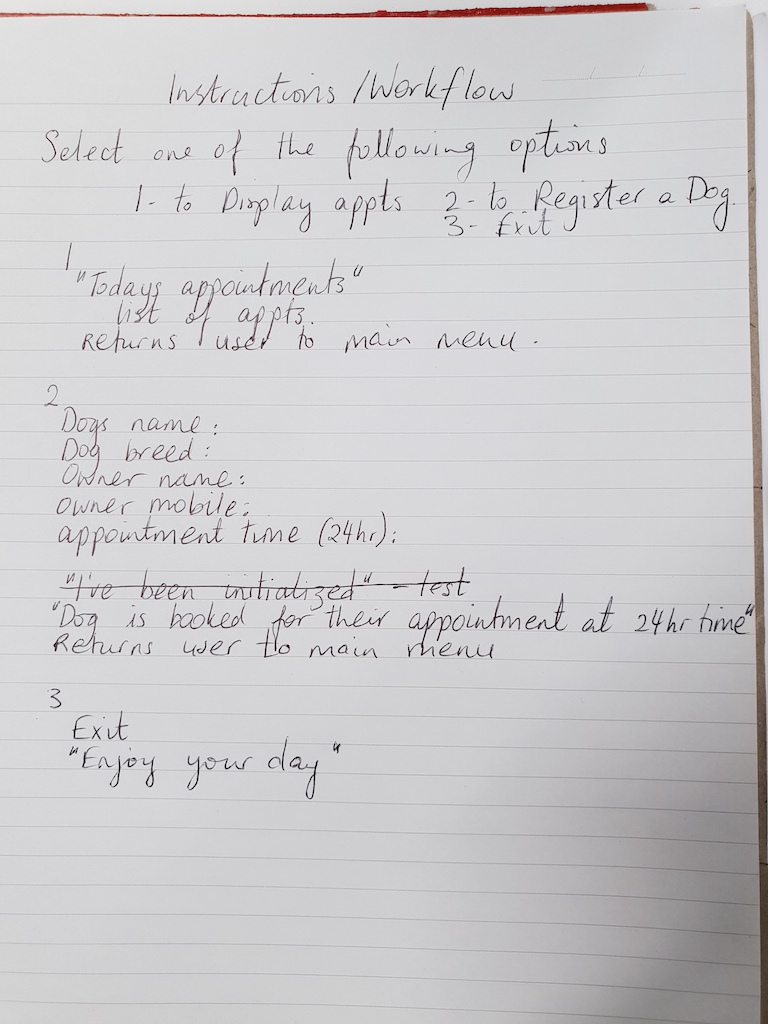 Instructions / Workflow
Select one of the following options
1- to Display appts 2- to Register a Dog.
3- Exit
1
"Todays appointments"
list of appts.
Returns user to main menu.
2
Dogs name:
Dog breed:
Owner name:
owner mobile:
appointment time (24hr):
"I've been initialized" - test
"Dog is booked for their appointment at 24hr time"
Returns user to main menu
3
Exit
"Enjoy your day"